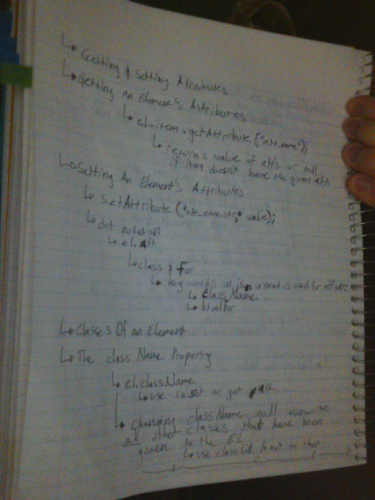 ↳ Getting & Setting Attributes
↳ Getting an Element's Attributes
↳ el.item.getAttribute("attr.name");
↳ returns value of attr or null
if item doesn't have the given attr.
↳ Setting An Element's Attributes
↳ setAttribute("attr_name_str", value);
↳ dot notation
↳ el.att
↳ class & for
↳ keywords in js
↳ className
↳ htmlFor
↳ Classes Of an Element
↳ The className Property
↳ el.className
↳ use to set or get
↳ changing className will overwrite
all other classes that have been
given to the
↳ use classList